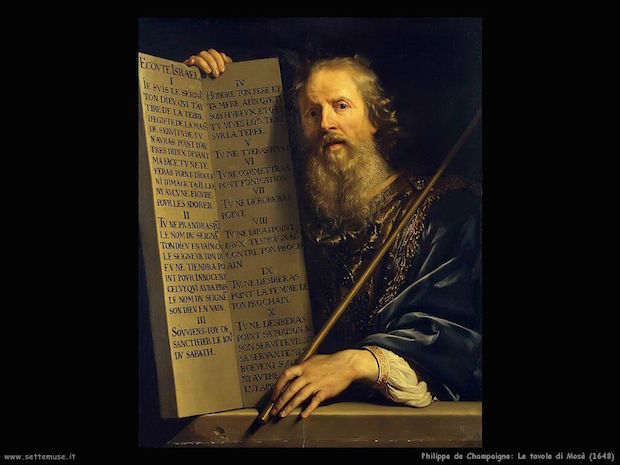 ECOVTE ISRAEL,
I
IE SVIS LE SEIGNE
TON DIEV QVI T'AY
TIRE DE LA TERRE
D'EGIPTE DE LA MAI
DE SERVITVDE. TV
N'AVRAS POINT D'AV
TRES DIEVX DEVANT
MA FACE. TV NE TE
FERAS POINT D'IDOLE
NI D'IMAGE TAILLEE
NY AVCVNE FIGVRE,
POVR LES ADORER.
II
TV NE PRANDRAS POI
LE NOM DV SEIGNE
TON DIEV EN VAIN CA
LE SEIGNEVR TON DI
EV NE TIENDRA PO
INT POVR INNOCENT
CELVY QVI AVRA PRIS
LE NOM DV SEIGNE
SON DIEV EN VAIN.
III
SOVVIENS-TOY DE
SANCTIFIER LE IOV
DV SABATH.
IV
HONORE TON PERE ET
TA MERE, AFIN QVE TV
SOIS HVREVX, ET QVE
TV VIVES LONG TEMP
SVR LA TERRE.
V
TV NE TVERAS POINT
VI
TV NE COMMETTRAS
POINT FORNICATION.
VII
TV NE DEROBERAS
POINT.
VIII
TV NE DIRAS POINT
FAVX TESMOIGNAG
CONTRE TON PROCH
AIN
IX
TV NE DESIRERAS
POINT LA FEMME DE
TON PROCHAIN.
X
TV NE DESIRERAS
POINT SA MAISON N
SON SERVITEVR, NY
SA SERVANTE NY
BOEVF NY SON
NY AVTRE
www.settemuse.it
Philippe de Champaigne: Le tavole di Mosè (1648)